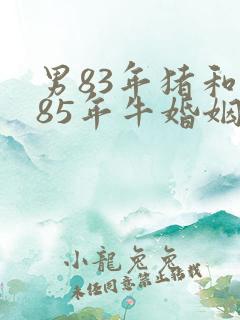 男83年猪和
85年牛婚姻
小龍兔兔
未经同意禁止转载